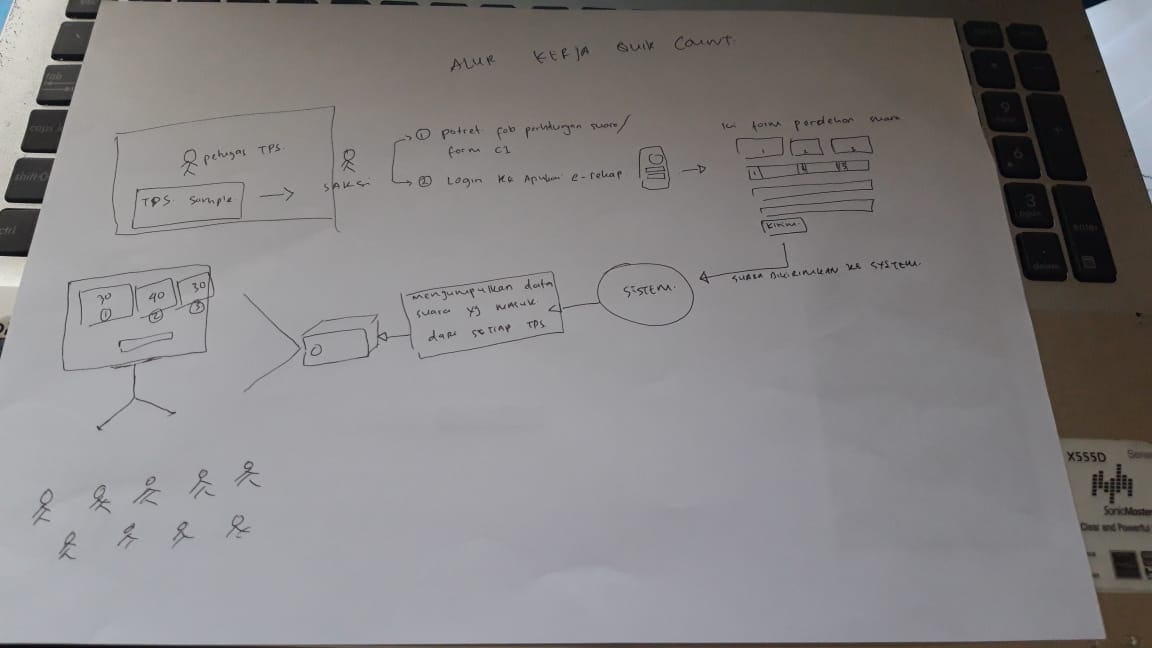 ALUR KERJA QUIK COUNT.
petugas TPS.
TPS. Sample
SAKSI
① potret
suara/
form C1
② Login ke e-rekap
Isi form suara
1 2 3
KIRIM.
SUARA DIKIRIMKAN KE SYSTEM.
SISTEM.
mengumpulkan data
suara yg masuk
dari SETIAP TPS
30 40 30
① ② ③
tab
caps
shift
ctrl
9
6
3
enter
X555D
SonicMaster
Clear and Powerful